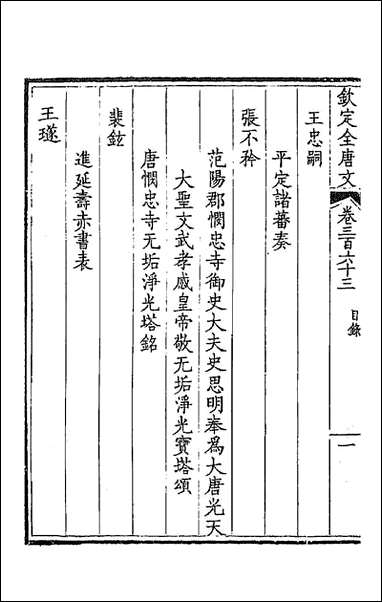 欽定全唐文 卷三百六十三 目錄 一
王忠嗣
平定諸蕃奏
張不矜
范陽郡憫忠寺御史大夫史思明奉爲大唐光天
大聖文武孝感皇帝敬无垢淨光寶塔頌
唐憫忠寺无垢淨光塔銘
裴鉉
進延壽赤書表
王璲